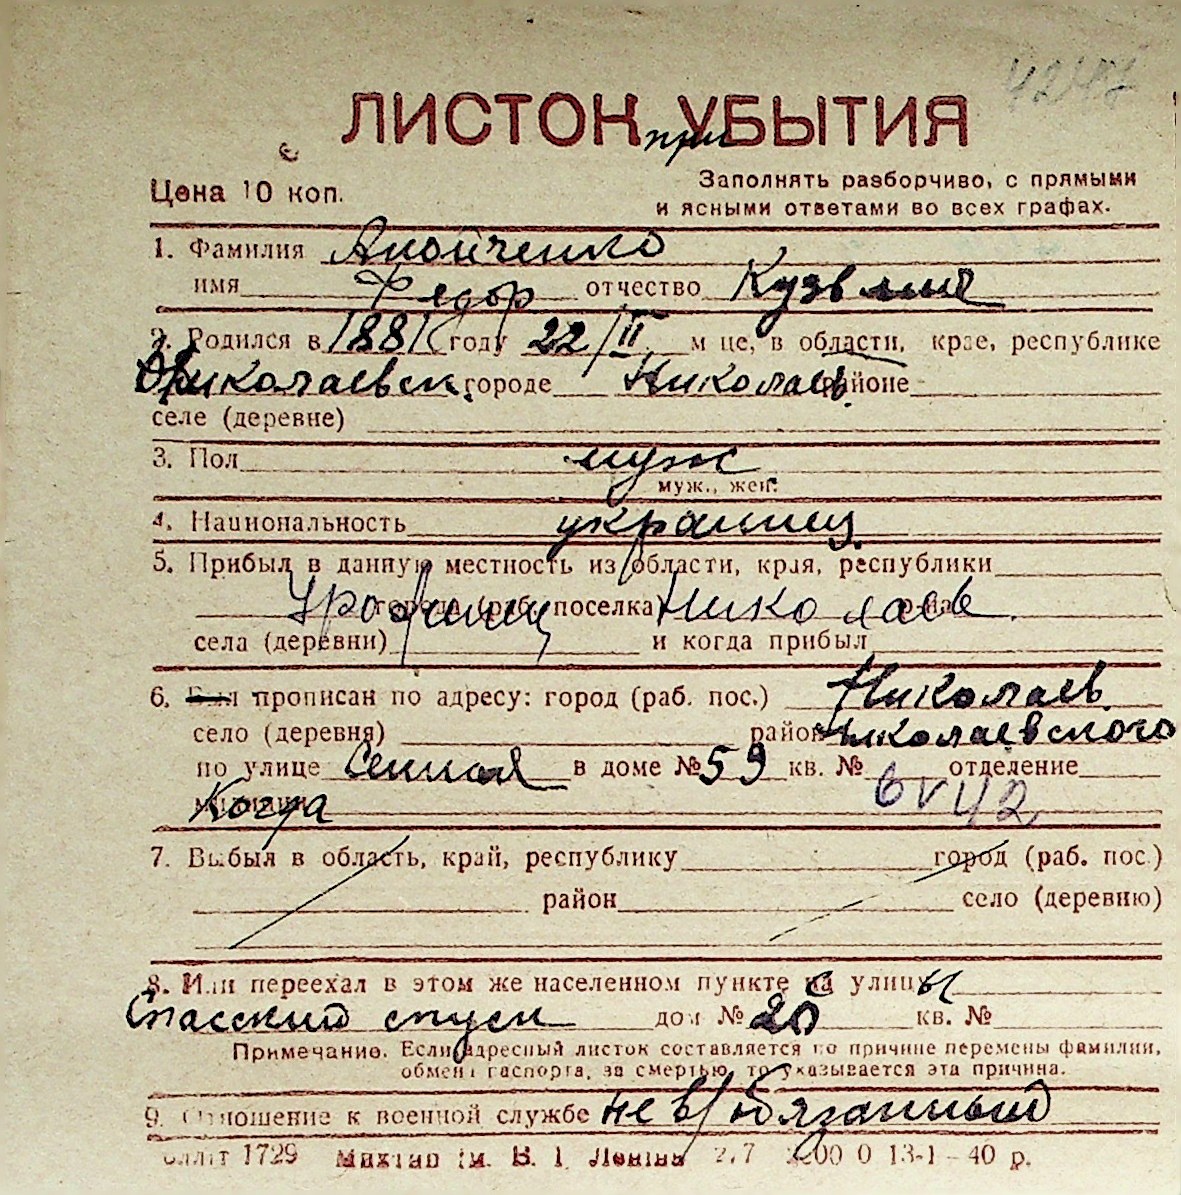 4248
ЛИСТОК при УБЫТИЯ
Цена 10 коп.
Заполнять разборчиво, с прямыми
и ясными ответами во всех графах.
1. Фамилия Анойченко
имя Федор отчество Кузьмич
2. Родился в 1881 году 22/II м це, в области, крае, республике
Николаевск. городе Николаев. районе
селе (деревне)
3. Пол муж
муж., жен.
4. Национальность украинец
5. Прибыл в данную местность из области, края, республики
города (раб. поселка) Николаев. р-на
села (деревни) и когда прибыл
6. Был прописан по адресу: город (раб. пос.) Николаев.
село (деревня) район Николаевского
по улице Сенная в доме № 59 кв. № отделение
милиции Когда 6 V 42
7. Выбыл в область, край, республику город (раб. пос.)
район село (деревню)
8. Или переехал в этом же населенном пункте с улицы
Спасский спуск дом № 26 кв. №
Примечание. Если адресный листок составляется по причине перемены фамилии,
обмена паспорта, за смертью, то указывается эта причина.
9. Отношение к военной службе не в/обязанный
1729 им. В. І. Леніна 13-1-40 р.